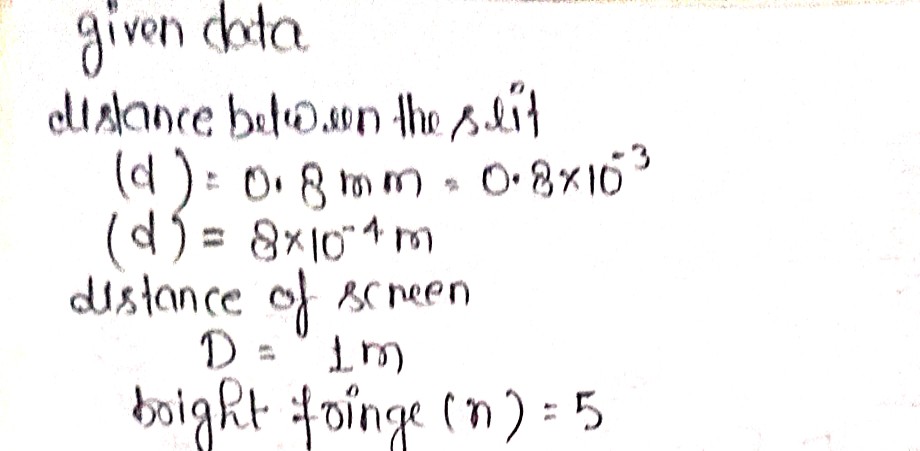 given data
distance between the slit
(d) = 0.8 mm = 0.8×10⁻³
(d) = 8×10⁻⁴ m
distance of screen
D = 1m
bright fringe (n) = 5